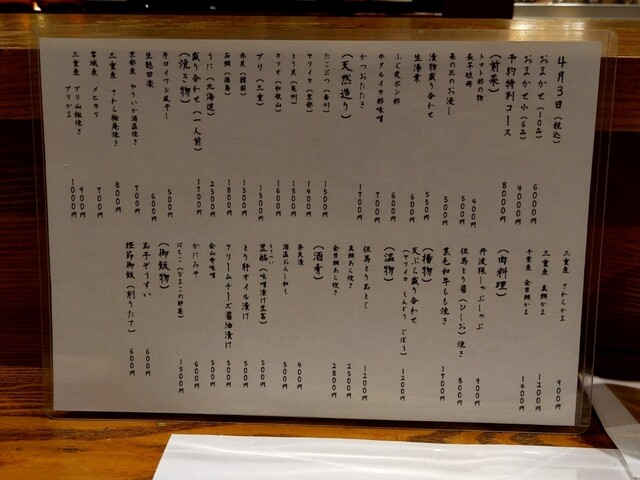 4月3日（税込）
おまかせ（10品） 6000円
おまかせ小（6品） 4000円
予約特別コース 8000円
（前菜）
トマト酢の物 400円
長芋短冊 500円
菜の花のお浸し 500円
漬物盛り合わせ 550円
生海苔 600円
ふぐ皮ポン酢 600円
ホタルイカ酢味噌 700円
かつおたたき 1700円
（天然造り）
たこぶつ（香川） 1500円
ヤリイカ（京都） 1400円
とり貝（泉州） 1500円
カツオ（和歌山） 1600円
ブリ（三重） 1500円
赤貝（韓国） 1800円
石鯛（徳島） 1500円
うに（北海道） 2500円
盛り合わせ（一人前） 1700円
（焼き物）
片口イワシ風干し 500円
生麩田楽 600円
京都産 やりいか酒盗焼き 700円
三重産 さわら柚庵焼き 800円
宮城産 メヒカリ 700円
三重産 ブリ山椒焼き 900円
ブリかま 1000円
三重産 さわらかま 900円
三重産 真鯛かま 1200円
千葉産 金目鯛かま 1400円
（肉料理）
丹波豚しゃぶしゃぶ 900円
但馬とり醤（ひしお）焼き 800円
黒毛和牛もも焼き 1700円
（揚物）
天ぷら盛り合わせ
（ヤリイカ しんどう ごぼう） 1200円
（温物）
但馬とり玉とじ 1200円
真鯛あら炊き 2500円
金目鯛あら炊き 2800円
（酒肴）
奈良漬 400円
酒盗おろし和え 500円
とうべい
豆䤖（味噌漬け豆富） 500円
とり肝オイル漬け 500円
クリームチーズ醤油漬け 500円
金山寺味噌 500円
かにみそ 600円
ばちこ（なまこの卵巣） 1500円
（御飯物）
玉子ぞうすい 600円
鰹節御飯（削りたて） 600円